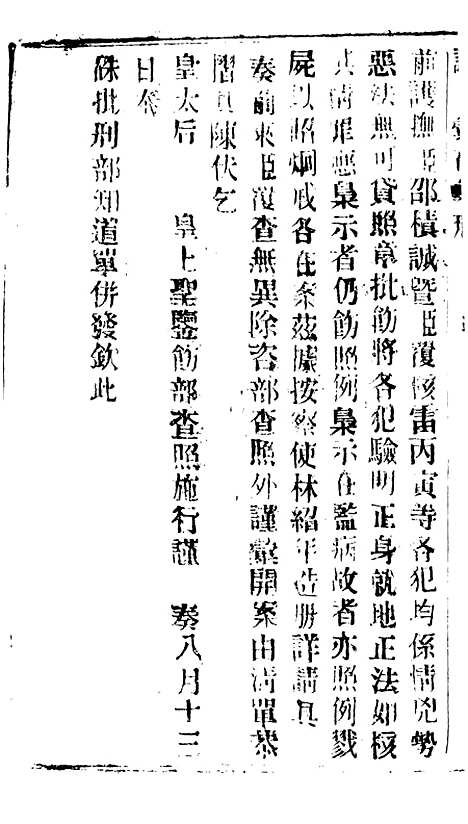 前護撫臣邵積誠暨臣覆核雷丙寅等各犯均係情兇勢
惡法無可貸照章批飭將各犯驗明正身就地正法如核
其情罪應梟示者仍飭照例梟示在監病故者亦照例戮
屍以昭炯戒各在案茲據按察使林紹年造册詳請具
奏前來臣覆查無異除咨部查照外謹彙開案由清單恭
摺具陳伏乞
皇太后 皇上聖鑒飭部查照施行謹 奏八月十三
日奉
硃批刑部知道單併發欽此